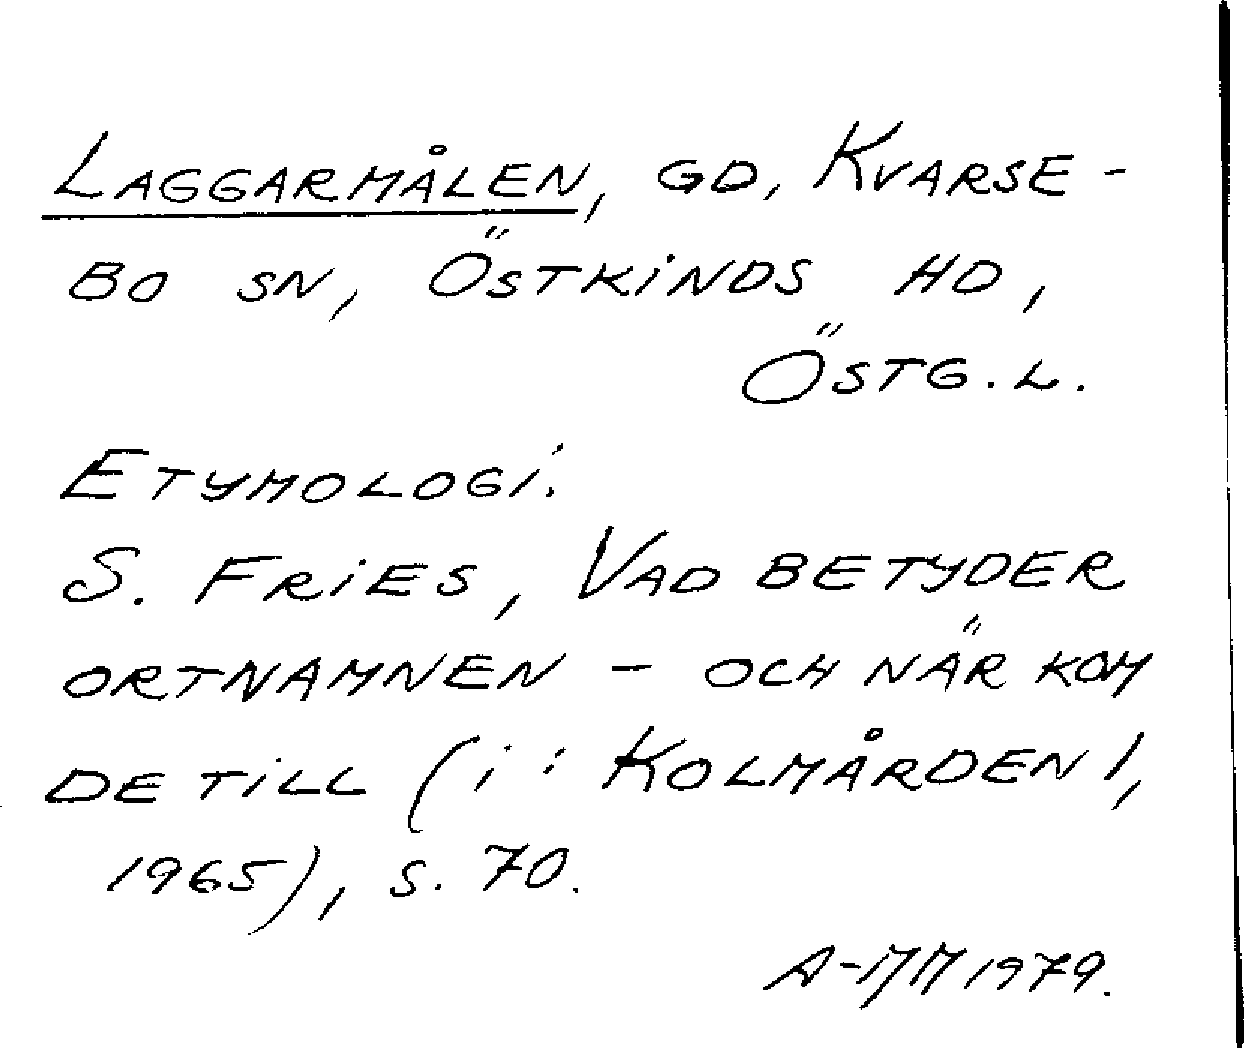 LAGGARMÅLEN, GD, KVARSE-
BO SN, ÖSTKINDS HD,
ÖSTG. L.
ETYMOLOGI.
S. FRIES, VAD BETYDER
ORTNAMNEN - OCH NÄR KOM
DE TILL (i: KOLMÅRDEN 1,
1965), S. 70.
A-MM 1979.